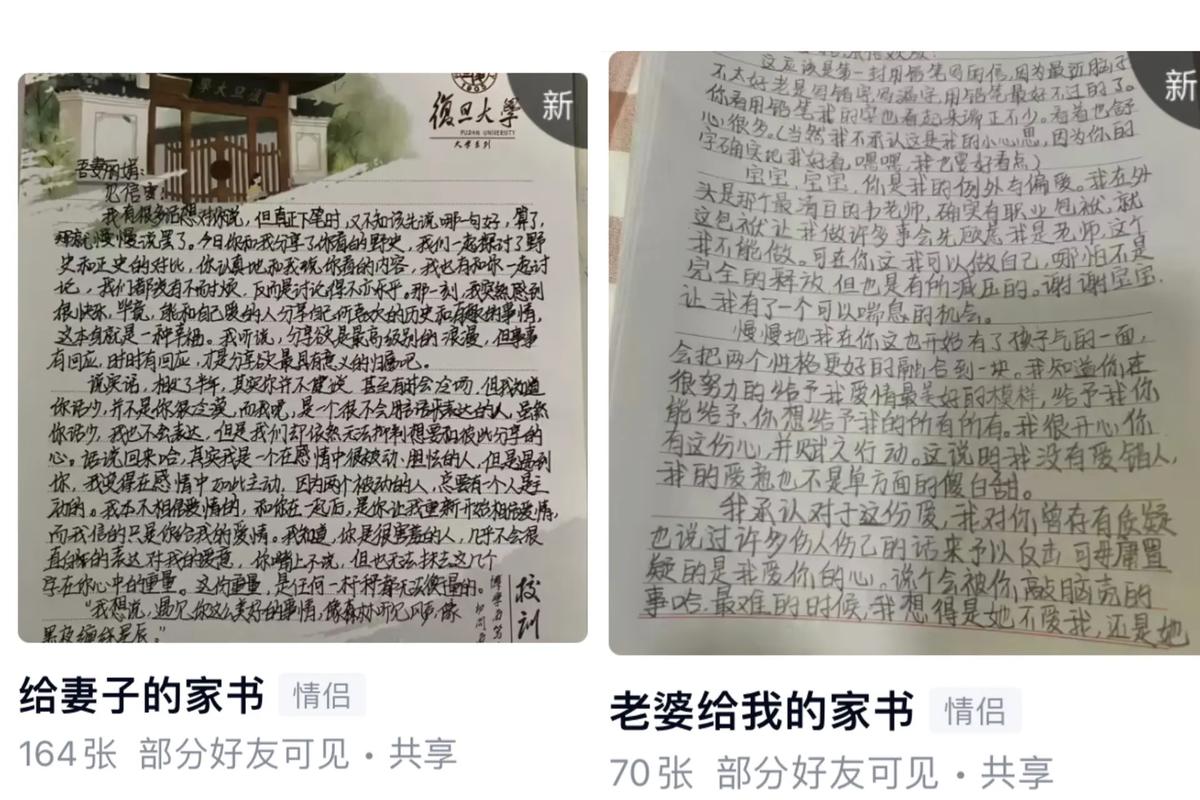 學大旦復
1905
復旦大学
FUDAN UNIVERSITY
大学系列
新
吾妻丽娟:
见信安
我有很多话想对你说,但真正下笔时,又不知该先说哪一句好,算了,
那就慢慢说罢了。今日你和我分享了你看的野史,我们一起探讨了野
史和正史的对比,你认真地和我说你看的内容,我也有和你一起讨
论,我们都没有不耐烦,反而是讨论得不亦乐乎。那一刻,我突然感到
很快乐,毕竟,能和自己爱的人分享自己所喜欢的历史和有趣的事情,
这本身就是一种幸福。我听说,分享欲是最高级别的浪漫,但事事
有回应,时时有回应,才是分享欲最具有意义的归宿吧。
说实话,相处了半年,其实你并不健谈,甚至有时会冷场,但我知道
你话少,并不是你很冷漠,而我呢,是一个很不会用话语表达的人,虽然
你话少,我也不会表达,但是我们却依然无法抑制想要和彼此分享的
心。话说回来哈,其实我是一个在感情中很被动、胆怯的人,但是遇到
你,我变得在感情中如此主动,因为两个被动的人,总要有一个人是主
动的。我本不相信爱情的,和你在一起后,是你让我重新开始相信爱情,
而我信的只是你给我的爱情。我知道,你是很害羞的人,几乎不会很
直白的表达对我的爱意,你嘴上不说,但也无法抹去这几个
字在你心中的重量。这份重量,是任何一杆秤都无法衡量的。
“我想说,遇见你这么美好的事情,像森林听见风声,像
黑夜缠绵星辰。”
校训
博学而笃
切问
给妻子的家书
情侣
164张 部分好友可见・共享
新
这应该是第一封用铅笔写的信,因为最近脑子
不太好老是写错字写漏字,用铅笔最好不过的了。
你看用铅笔我的字也看起来端正不少。看着也舒
心很多。(当然我不承认这是我的小心思,因为你的
字确实比我好看,嘿嘿,我也要好看点)
宝宝,宝宝,你是我的例外与偏爱。我在外
头是那个最清白的书老师,确实有职业包袱,就
这包袱让我做许多事会先顾忌我是老师,这个
我不能做。可在你这我可以做自己,哪怕不是
完全的释放,但也是有所减压的。谢谢宝宝,
让我有了一个可以喘息的机会。
慢慢地我在你这也开始有了孩子气的一面,
会把两个性格更好的融合到一块。我知道你在
很努力的给予我爱情最美好的模样,给予我你
能给予、你想给予我的所有所有。我很开心,你
有这份心,并赋之行动。这说明我没有爱错人,
我的爱意也不是单方面的傻白甜。
我承认对于这份爱,我对你曾存有质疑
也说过许多伤人伤己的话来予以反击,可毋庸置
疑的是我爱你的心。说个会被你敲脑壳的
事哈,最难的时候,我想得是她不爱我,还是她
老婆给我的家书
情侣
70张 部分好友可见・共享